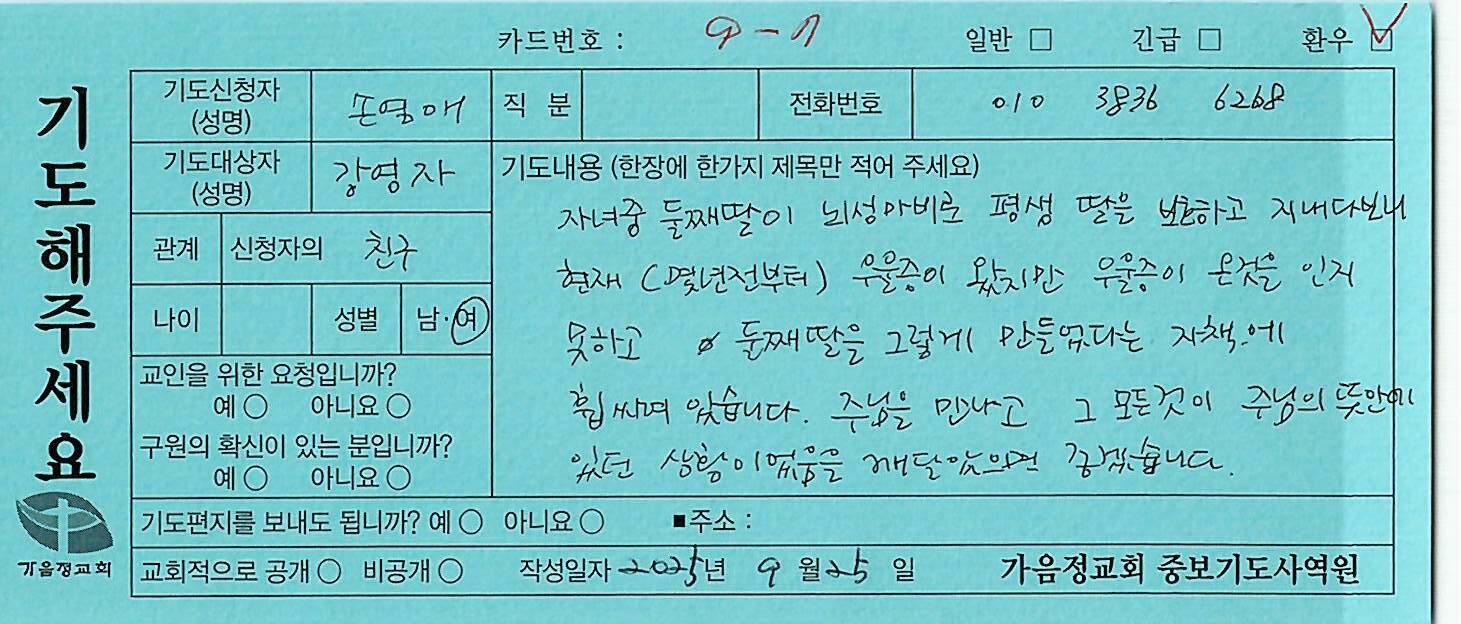 카드번호 : 9-7 일반 □ 긴급 □ 환우 ☑
기도해주세요
기도신청자 (성명) 손영애 직 분 전화번호 010 3836 6268
기도대상자 (성명) 강영자
기도내용 (한장에 한가지 제목만 적어 주세요)
자녀중 둘째딸이 뇌성마비로 평생 딸을 보호하고 지내다보니
현재 (몇년전부터) 우울증이 왔지만 우울증이 온것을 인지
못하고 둘째딸을 그렇게 만들었다는 자책에
휩싸여 있습니다. 주님을 만나고 그 모든것이 주님의 뜻안에
있던 상황이었음을 깨달았으면 좋겠습니다.
관계 신청자의 친구
나이 성별 남·여
교인을 위한 요청입니까?
예 ○ 아니요 ○
구원의 확신이 있는 분입니까?
예 ○ 아니요 ○
기도편지를 보내도 됩니까? 예 ○ 아니요 ○ ■주소 :
교회적으로 공개 ○ 비공개 ○ 작성일자 2025년 9월 25일 가음정교회 중보기도사역원
가음정교회